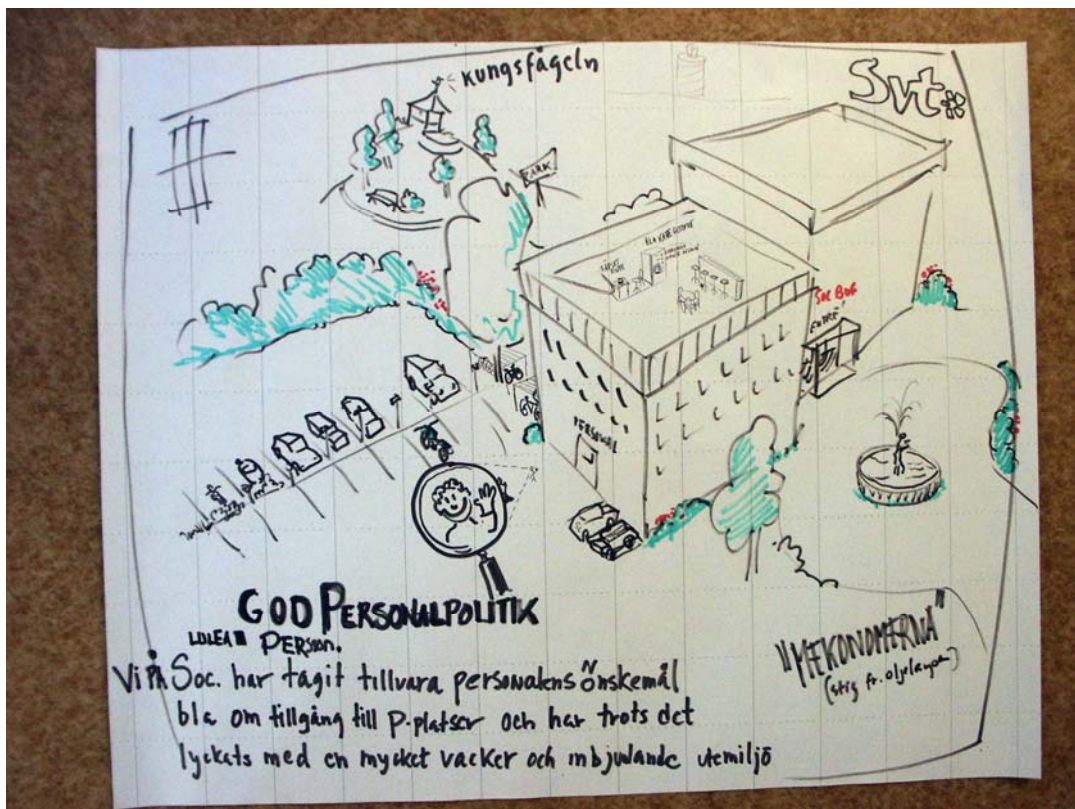 Kungsfågeln
Svt
PARK
SOC BOF
ENTRÉ
PERSONAL
GOD PERSONALPOLITIK
LULEÅ PERSON.
Vi på Soc. har tagit tillvara personalens önskemål
bla om tillgång till P-platser och har trots det
lyckats med en mycket vacker och inbjudande utemiljö
"MEKONOMERNA"
(stig fr. oljelangen)